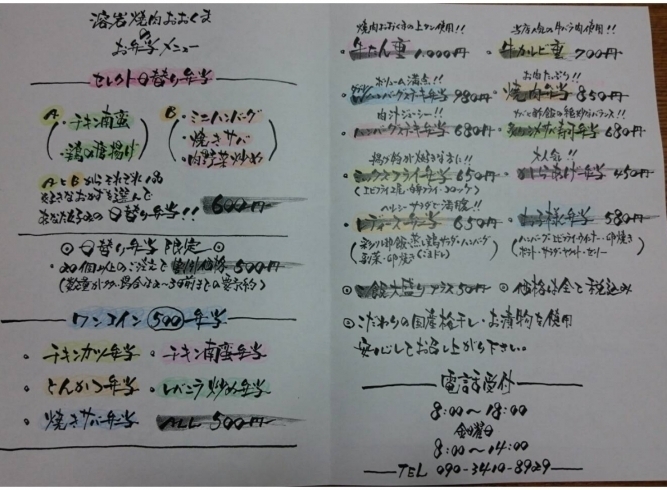 溶岩焼肉おおくま
の
お弁当メニュー
セレクト日替り弁当
A
・チキン南蛮
・鶏の唐揚げ
B
・ミニハンバーグ
・焼きサバ
・肉野菜炒め
AとBからそれぞれ1品
好きなおかずを選んで
あなた好みの日替り弁当!! 600円
◎日替り弁当 限定◎
・20個以上のご注文で 特別価格 500円
ワンコイン 500 弁当
・チキンカツ弁当
・チキン南蛮弁当
・とんかつ弁当
・レバニラ炒め弁当
・焼きサバ弁当
ALL 500円
焼肉おおくまの上タン使用!!
・牛たん重 1.000円
当店人気の牛バラ肉使用!!
・牛カルビ重 700円
ボリューム満点!!
ハンバーグステーキ弁当 980円
お肉たっぷり!!
・焼肉弁当 850円
肉汁ジューシー!!
・ハンバーグステーキ弁当 680円
サバと酢飯の絶妙なバランス!!
寿司弁当 680円
揚げ物が好きな方に!!
・ミックスフライ弁当 650円
(エビフライ2尾・白身フライ・コロッケ)
大人気!!
弁当 450円
ヘルシーサラダで満足!!
・レディース弁当 650円
・お子様弁当 580円
(ハンバーグ・エビフライ・ウインナー・卵焼き
ポテト・サラダ・ヤクルト・ゼリー)
◎ご飯大盛りプラス50円
◎価格は全て税込み
◎こだわりの国産梅干し・お漬物を使用
安心してお召し上がり下さい。
電話受付
8:00〜18:00
金曜日
8:00〜14:00
TEL 090-3410-8929